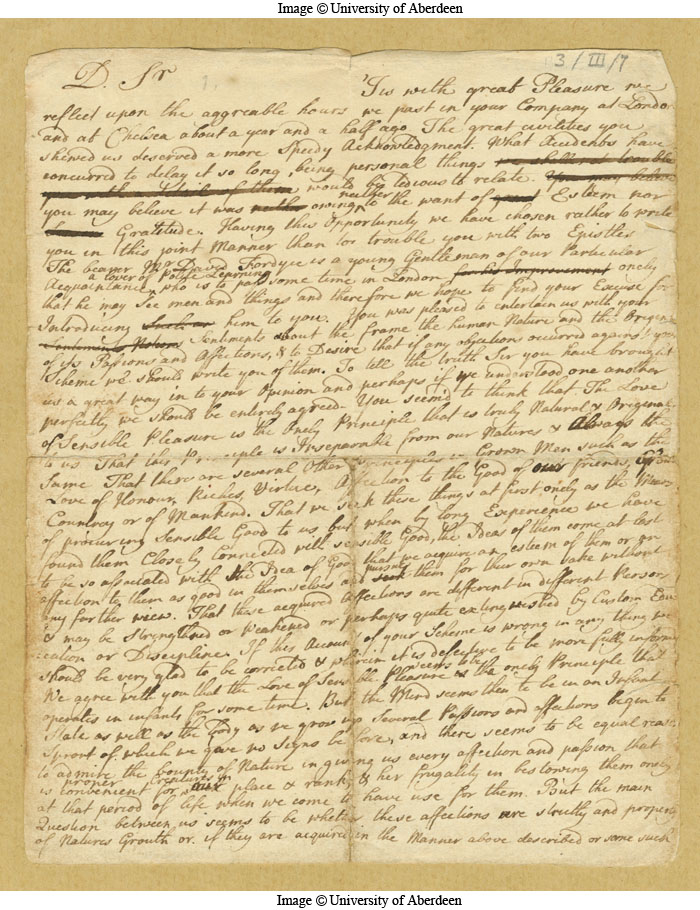 Image © University of Aberdeen
3/III/7
D. Sr
'Tis with great Pleasure we
reflect upon the aggreable hours we past in your Company at London
and at Chelsea about a year and a half ago. The great civilities you
shewed us deserved a more Speedy Acknowledgment. What Accidents have
concurred to delay it so long, being personal things we shall not trouble
you with a detail of them would be tedious to relate. You may believe
you may believe it was neither owing to the want of Esteem nor
Gratitude. Having this Opportunity we have chosen rather to write
you in this joint Manner than to trouble you with two Epistles
The bearer Mr David Fordyce is a young Gentleman of our Particular
a lover of Polite Learning
Acquaintance, who is to pass some time in London for his Improvement onely
that he may See men and things and therefore we hope to find your Excuse for
Introducing him to you. You was pleased to entertain us with your
Sentiments about the frame the human Nature and the Origene
of its Passions and Affections, & to Desire that if any objections occurred against your
Scheme we should write you of them. To tell the truth Sir you have brought
us a great way in to your Opinion and perhaps if we understood one another
perfectly we should be entirely agreed. You seem'd to think that The Love
of Sensible Pleasure is the Onely Principle that is truly Natural & Original
to us. That this Principle is Inseparable from our Natures & Always the
Same That there are several Other Principles in Grown Men such as the
Love of Honour, Riches, Virtue, Affection to the Good of our friends,
Country or of Mankind. That we seek these things at first onely as the Means
of procuring Sensible Good to us, but when by long Experience we have
found them Closely Connected with sensible Good, the Ideas of them come at last
to be so associated with the Idea of Good that we acquire an esteem of them or an
affection to them as good in themselves and pursue them for their own sake without
any further view. That these acquired Affections are different in different Persons
& may be Strengthned or weakened or perhaps quite extinguished by Custom Edu
cation or Discipline. If this Account of your Scheme is wrong in any thing we
should be very glad to be corrected & wherein it is defective to be more fully informed
We agree with you that the Love of Sensible Pleasure seems to be the onely Principle that
operates in infants for some time. But the Mind seems then to be in an Infant
State as well as the Body as we grow up Several Passions and affections begin to
Sprout of which we gave no signs before, and there seems to be equal reason
to admire the bounty of Nature in giving us every affection and passion that
is convenient for our place & rank, & her frugality in bestowing them onely
at that period of life when we come to have use for them. But the main
Question between us seems to be whether these affections are strictly and properly
of Natures Grouth or if they are acquired in the Manner above described or some such
Image © University of Aberdeen